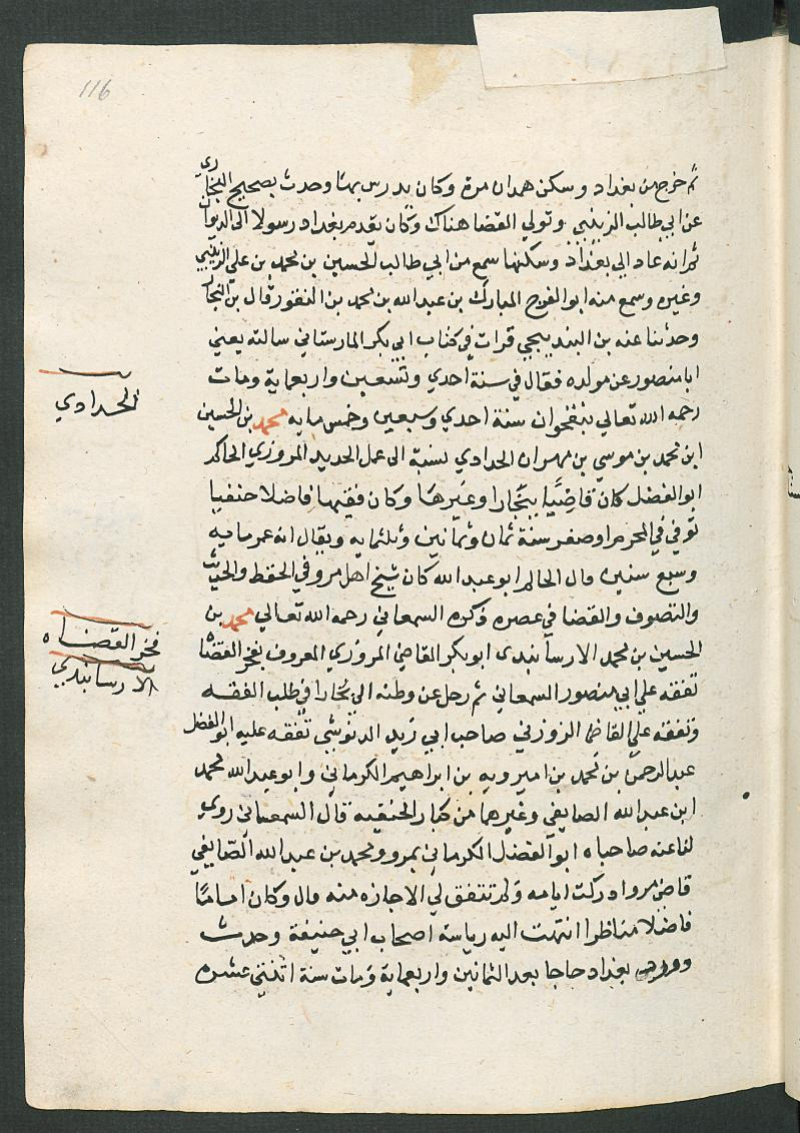 116
ثم خرج من بغداد وسكن همدان مرة وكان يدرس بها وحدث بصحيح البخاري
عن ابي طالب الزينبي وتولي القضا هناك وكان يقدم بغداد رسولا الى الديوان
ثم انه عاد الي بغداد وسكنها سمع من ابي طالب الحسين بن محمد بن على الزينبي
وغيره وسمع منه ابو الفرج المبارك بن عبد الله بن محمد بن النقور قال بن النجار
وحدثنا عنه بن البنديجي قرات في كتاب ابي بكر المارستاني سالته يعني
ابا منصور عن مولده فقال في سنة احدي وتسعين واربعماية ومات
رحمه الله تعالي سنة احدي وسبعين وخمس مايه محمد بن الحسين
ابن محمد بن موسي بن مهران الحدادي نسبة الى عمل الحديد المروزي الحاكم
ابو الفضل كان قاضيا ببخارا وغيرها وكان فقيها فاضلا حنفيا
توفي في المحرم او صفر سنة ثمان وثمانين وثلثمايه ويقال انه عمر مايه
وسبع سنين قال الحاكم ابو عبد الله كان شيخ اهل مرو في الحفظ والحديث
والتصوف والقضا في عصره ذكره السمعاني رحمه الله تعالي محمد بن
الحسين بن محمد الارسابندى ابو بكر القاضي المروزي المعروف بفخر القضاه
تفقه علي ابي منصور السمعاني ثم رحل عن وطنه الي بخارا في طلب الفقه
وتفقه علي القاضا الزوزني صاحب ابي زيد الدبوسي تفقه عليه ابو الفضل
عبد الرحمن بن محمد بن اميرويه بن ابراهيم الكرماني وابو عبد الله محمد
ابن عبد الله الصايغي وغيرهما من كبار الحنفيه قال السمعاني روي
لنا عنه صاحباه ابو الفضل الكرماني بمرو ومحمد بن عبد الله الصايغي
قاضي مرو ادركت ايامه ولم تتفق لي الاجازه منه قال وكان اماما
فاضلا مناظرا انتهت اليه رياسة اصحاب ابي حنيفة وحدث
وورد بغداد حاجا بعد الثمانين واربعماية ومات سنة اثنتي عشره
الحدادي
فخر القضاه
الارسابندي